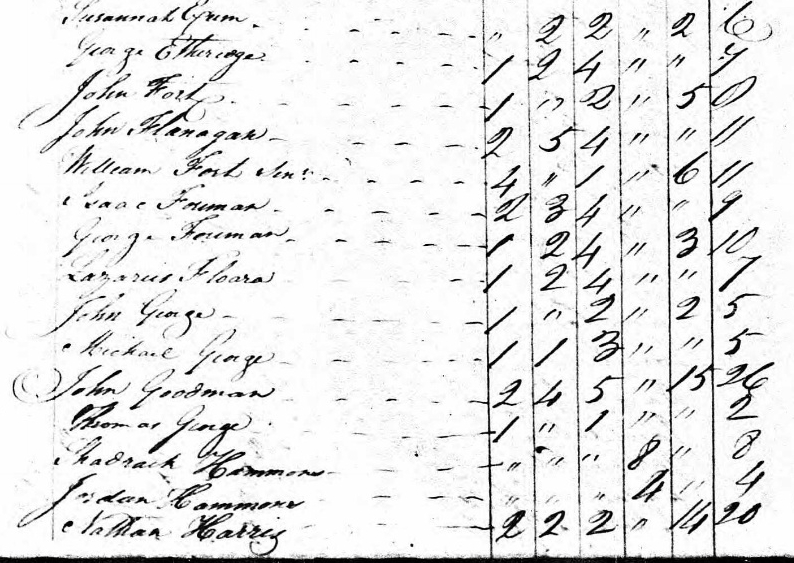 Susannah Exum " 2 2 " 2 6
George Etheridge 1 2 4 " " 7
John Fort 1 " 2 " 5 8
John Flanagan 2 5 4 " " 11
William Fort Senr 4 " 1 " 6 11
Isaac Fouman 2 3 4 " " 9
George Fouman 1 2 4 " 3 10
Lazarus Floara 1 2 4 " " 7
John George 1 " 2 " 2 5
Michael George 1 1 3 " " 5
John Goodman 2 4 5 " 15 26
Thomas George 1 " 1 " " 2
Shadrach Hammons " " " 8 " 8
Jordan Hammons " " " 4 " 4
Nathan Harris 2 2 2 " 14 20